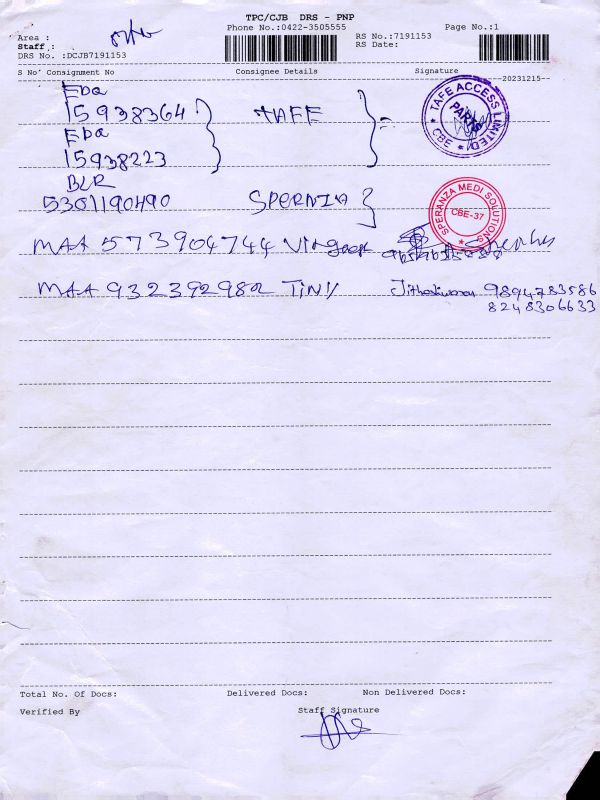 TPC/CJB DRS - PNP
Phone No.:0422-3505555
Page No.:1
Area :
Staff :
DRS No. :DCJB7191153
RS No.:7191153
RS Date:
S No' Consignment No Consignee Details Signature
20231215
15938364 TAFE
15938223
BLR
5301190490
MAA 573904744
MAA 932392982 TINY 9894783586
8248306633
TAFE ACCESS LIMITED
PARTS
* CBE *
SPERANZA MEDI SOLUTIONS
CBE-37
Total No. Of Docs: Delivered Docs: Non Delivered Docs:
Verified By Staff Signature